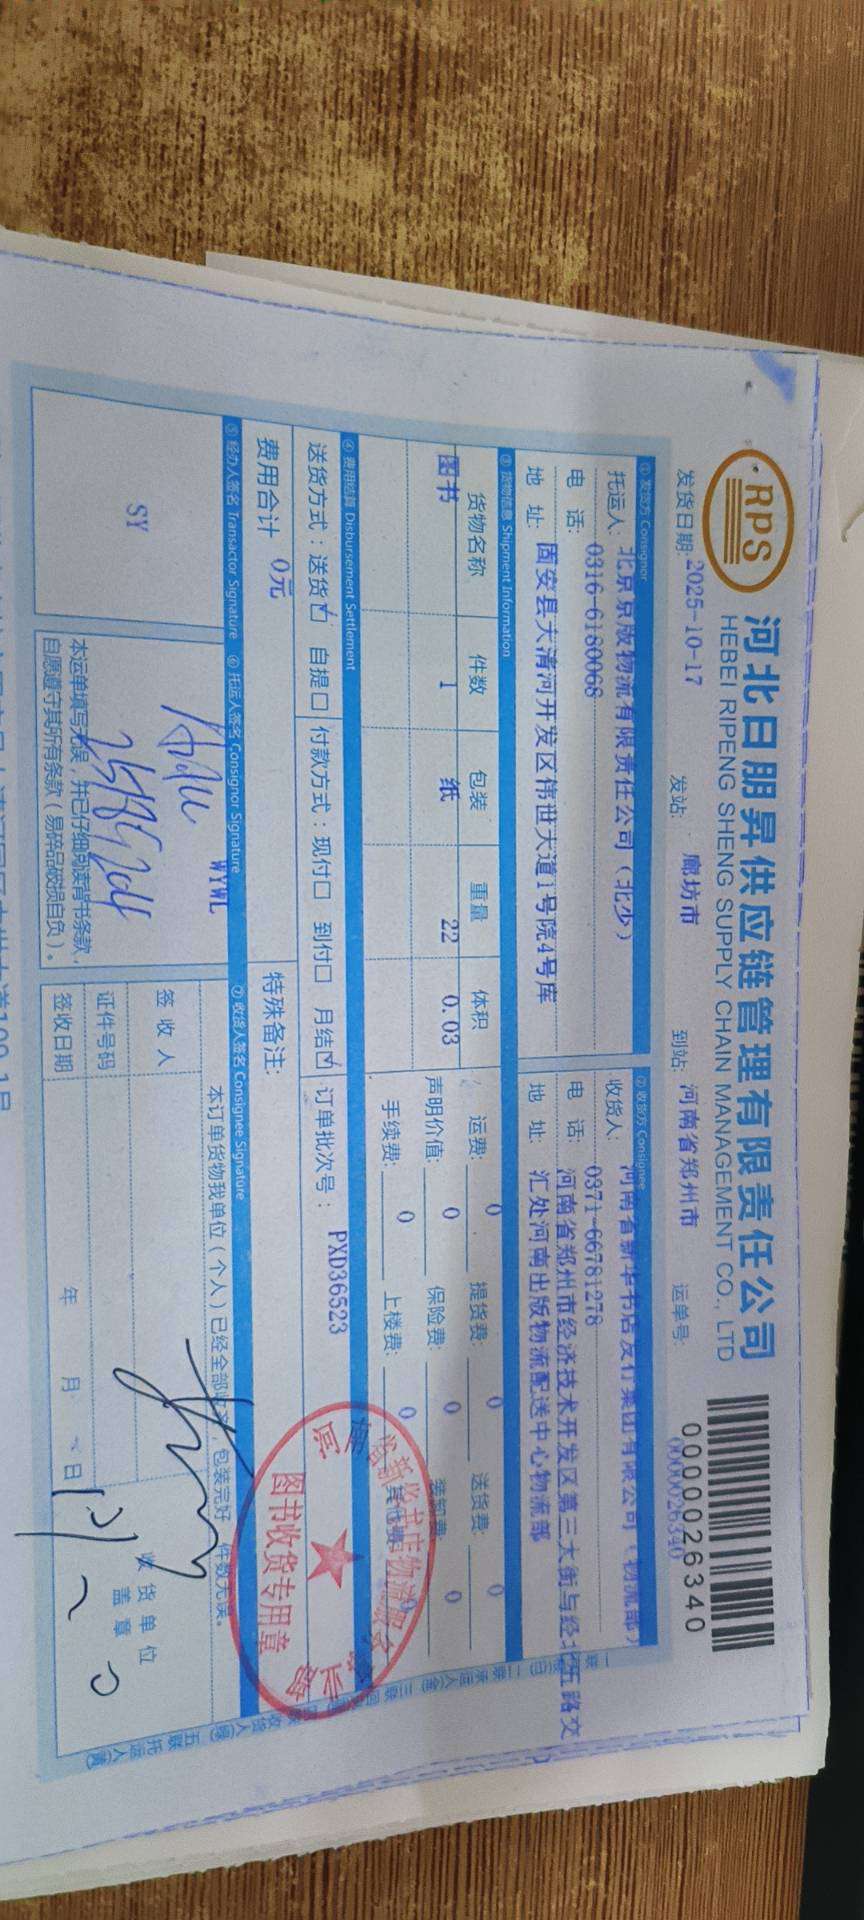 RPS
河北日朋昇供应链管理有限责任公司
HEBEI RIPENG SHENG SUPPLY CHAIN MANAGEMENT CO., LTD
0000026340
发货日期: 2025-10-17 发站: 廊坊市 到站: 河南省郑州市 运单号: 0000026340
① 发货方 Consignor ② 收货方 Consignee
托运人: 北京京版物流有限责任公司（北少）
收货人: 河南省新华书店发行集团有限公司（物流部）
电 话: 0316-6180068
电 话: 0371-66781278
地 址: 固安县大清河开发区伟世大道1号院4号库
地 址: 河南省郑州市经济技术开发区第三大街与经北五路交
汇处河南出版物流配送中心物流部
③ 货物信息 Shipment Information
货物名称 件数 包装 重量 体积
图书 1 纸 22 0.03
运费: 0 提货费: 0 送货费: 0
声明价值: 0 保险费: 0 装卸费: 0
手续费: 0 上楼费: 0 其他费:
④ 费用结算 Disbursement Settlement
送货方式：送货☑ 自提□ 付款方式：现付□ 到付□ 月结☑ 订单批次号： PXD36523
费用合计 0元 特殊备注:
⑤ 经办人签名 Transactor Signature ⑥ 托运人签名 Consignor Signature ⑦ 收货人签名 Consignee Signature
SY
WYWL
本运单填写无误，并已仔细阅读背书条款，
自愿遵守其所有条款（易碎品破损自负）。
本订单货物我单位（个人）已经全部收齐，包装完好，件数无误。
签 收 人
证件号码
签收日期 年 月 日
收货单位
盖 章
图书收货专用章